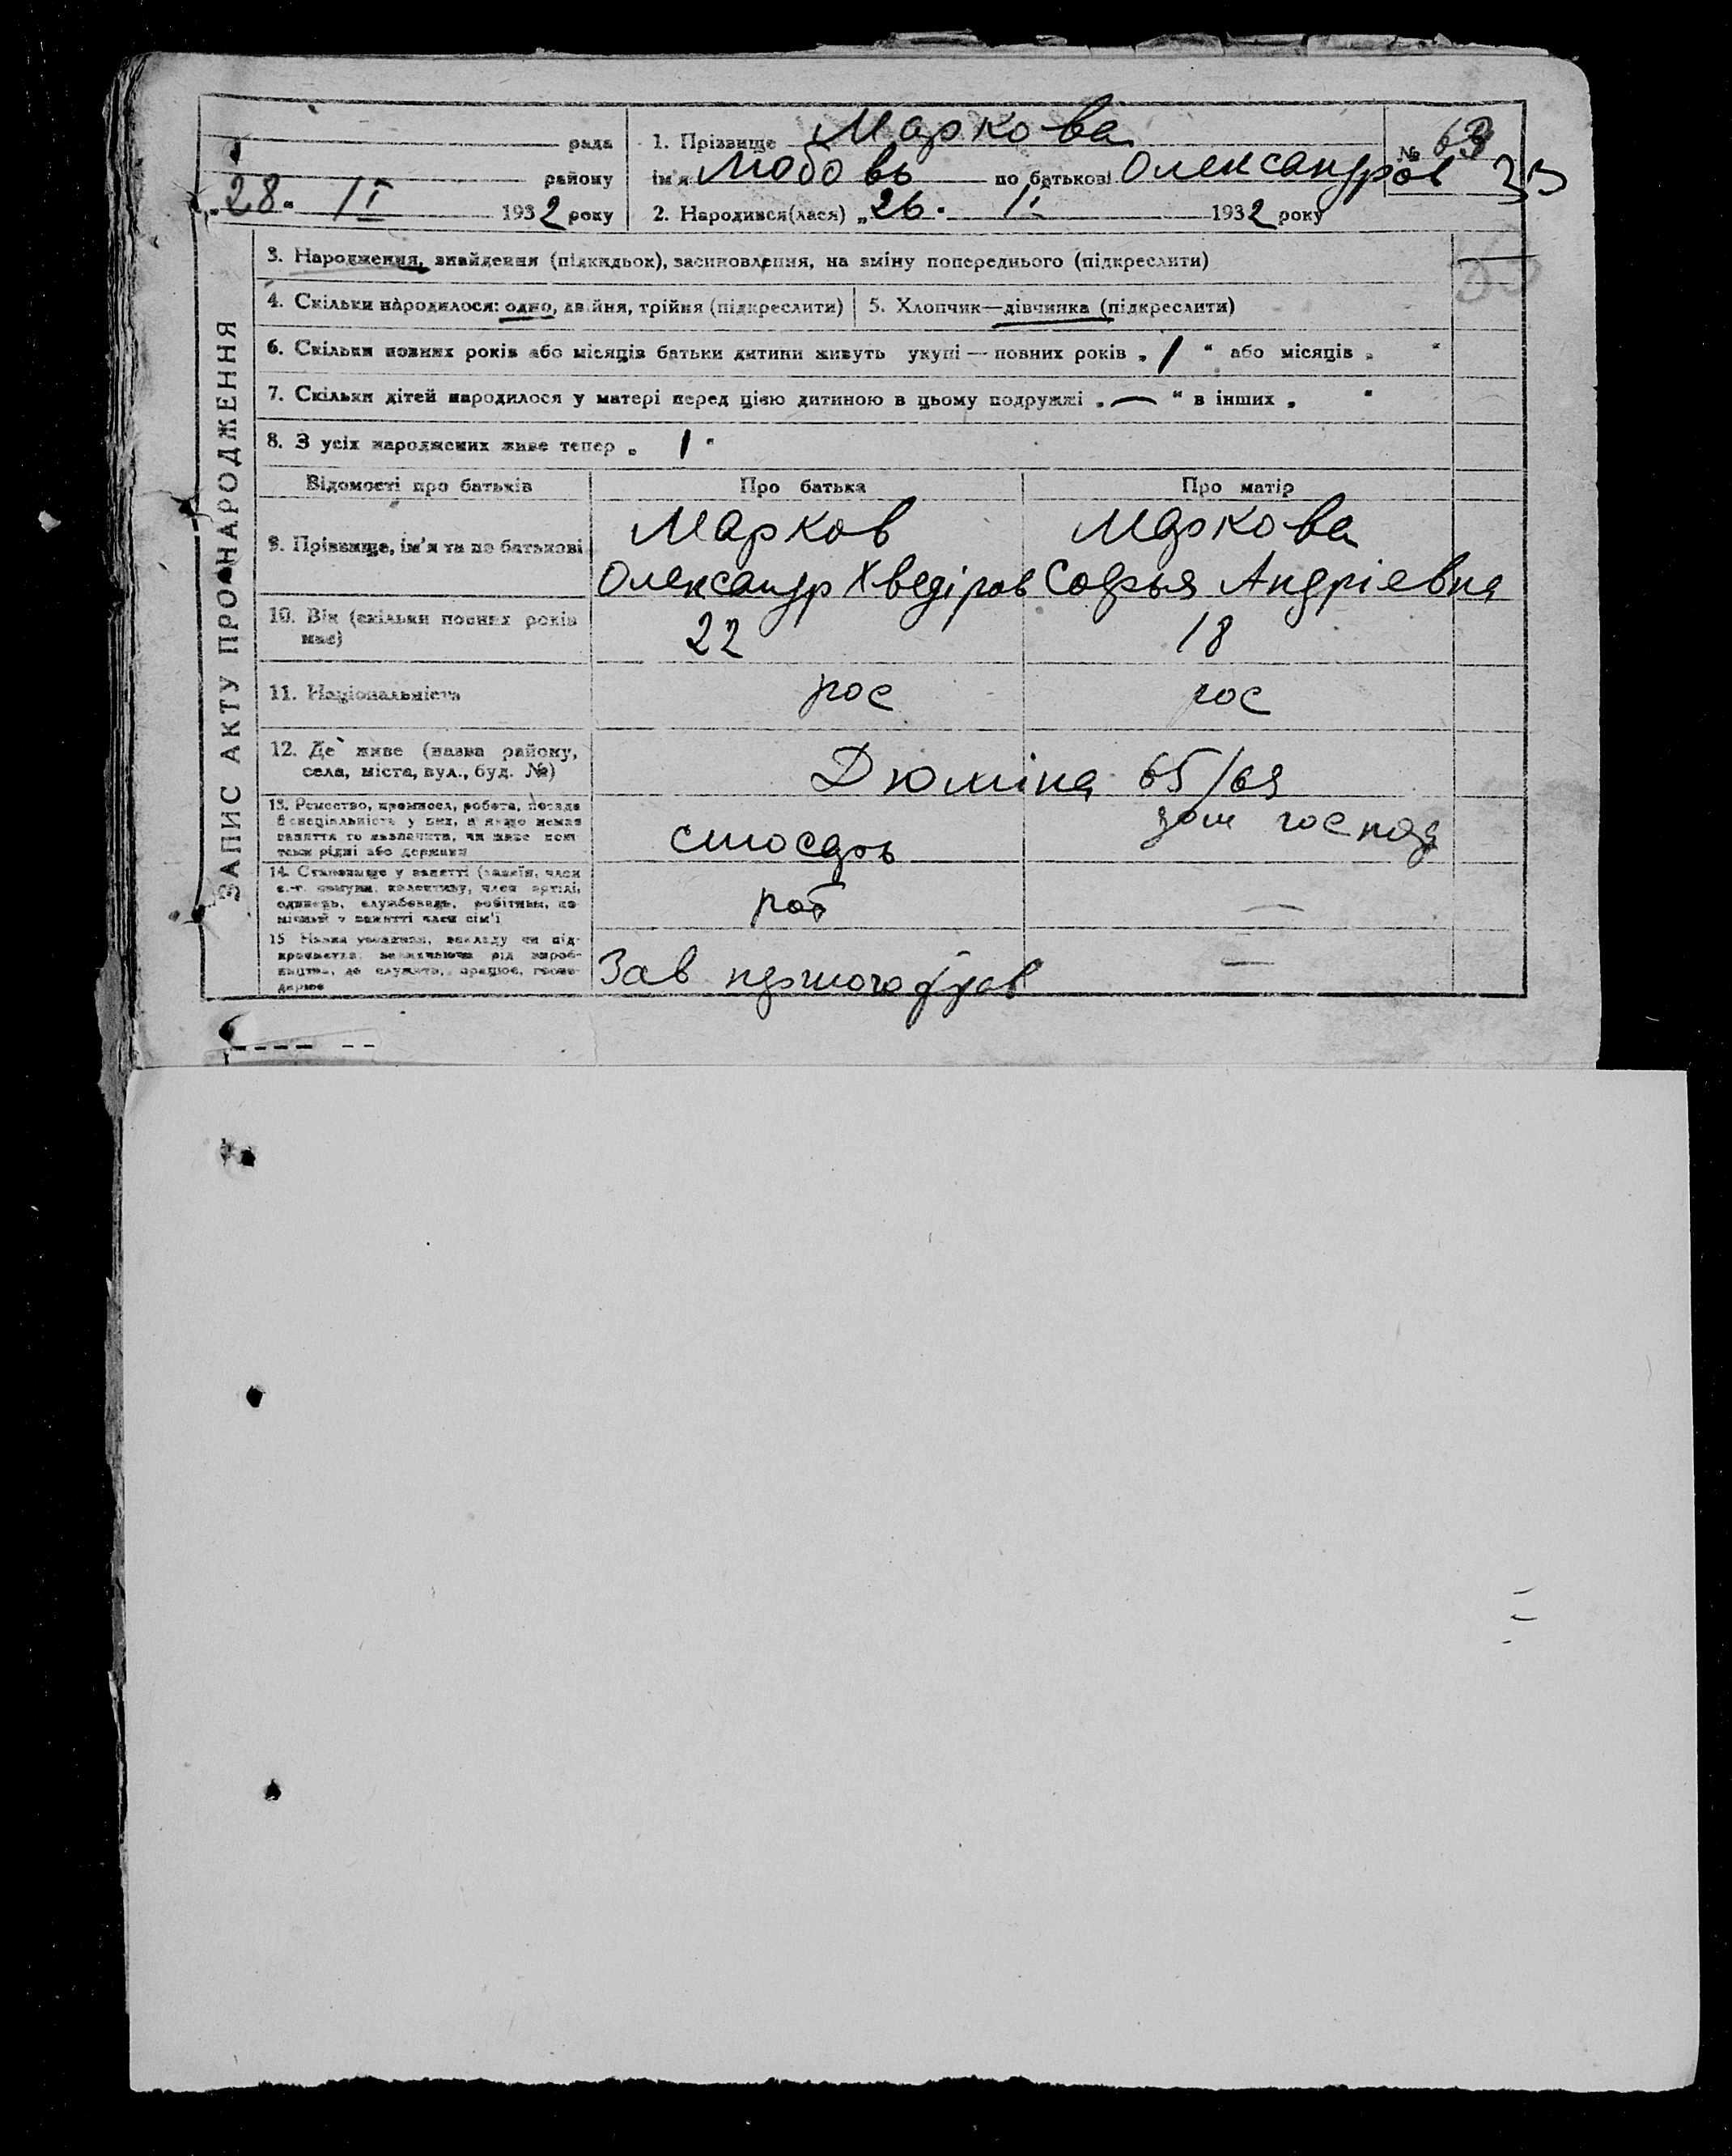 рада
району
„28“ II 1932 року
1. Прізвище Маркова
№ 63
ім'я Любовь по батькові Олександров
33
2. Народився(лася) „26“ II 1932 року
ЗАПИС АКТУ ПРО НАРОДЖЕННЯ
3. Народження, знайдення (підкидьок), засиновлення, на зміну попереднього (підкреслити)
4. Скільки народилося: одно, двійня, трійня (підкреслити)
5. Хлопчик—дівчинка (підкреслити)
6. Скільки повних років або місяців батьки дитини живуть укупі — повних років „1“ або місяців „ “
7. Скільки дітей народилося у матері перед цією дитиною в цьому подружжі „—“ в інших „ “
8. З усіх народжених живе тепер „1“
Відомості про батьків
Про батька
Про матір
9. Прізвище, ім'я та по батькові
Марков
Олександр Хведіров
Маркова
Софья Андріевна
10. Вік (скільки повних років
має)
22
18
11. Національність
рос
рос
12. Де живе (назва району,
села, міста, вул., буд. №)
Дюміна 65/69
13. Ремество, промисел, робота, посада
й спеціяльність у них, а якщо немає
заняття то зазначити, чи живе кош-
том рідні або держави
слюсарь
дом господ
14. Становище у занятті (хазяїн, член
с.-г. комуни, колективу, член артілі,
одинець, службовець, робітник, по-
мічний у занятті член сім'ї
роб
—
15. Назва установи, закладу чи під-
приємства, зазначаючи рід вироб-
ництва, де служить, працює, госпо-
дарює
Зав
—